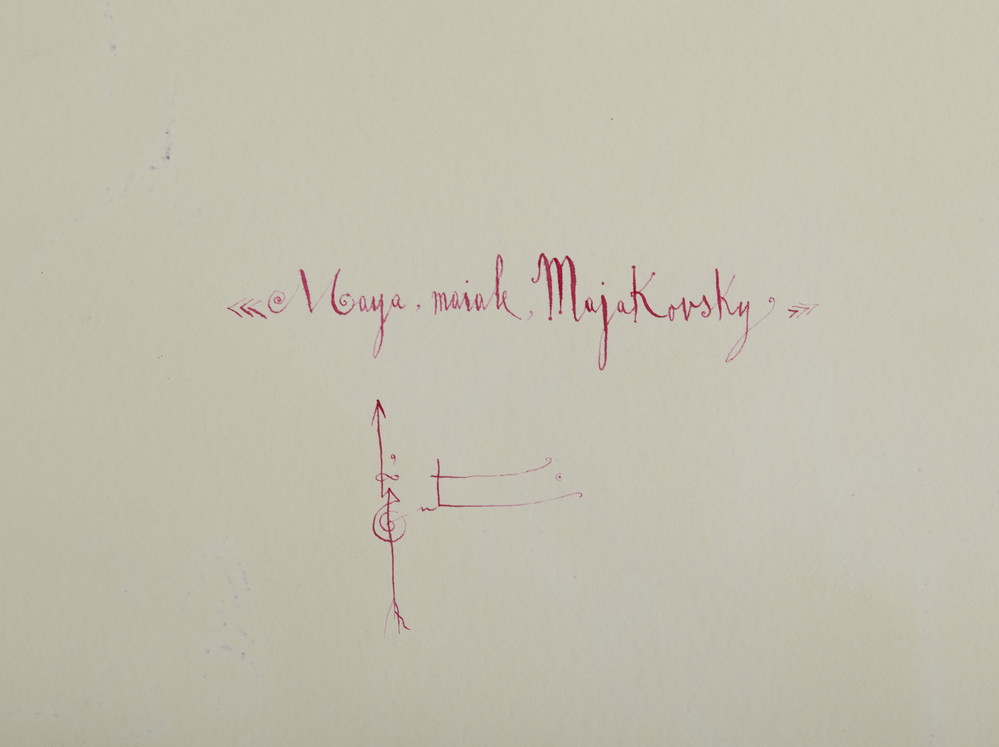 Maya, maiale, Majakovsky